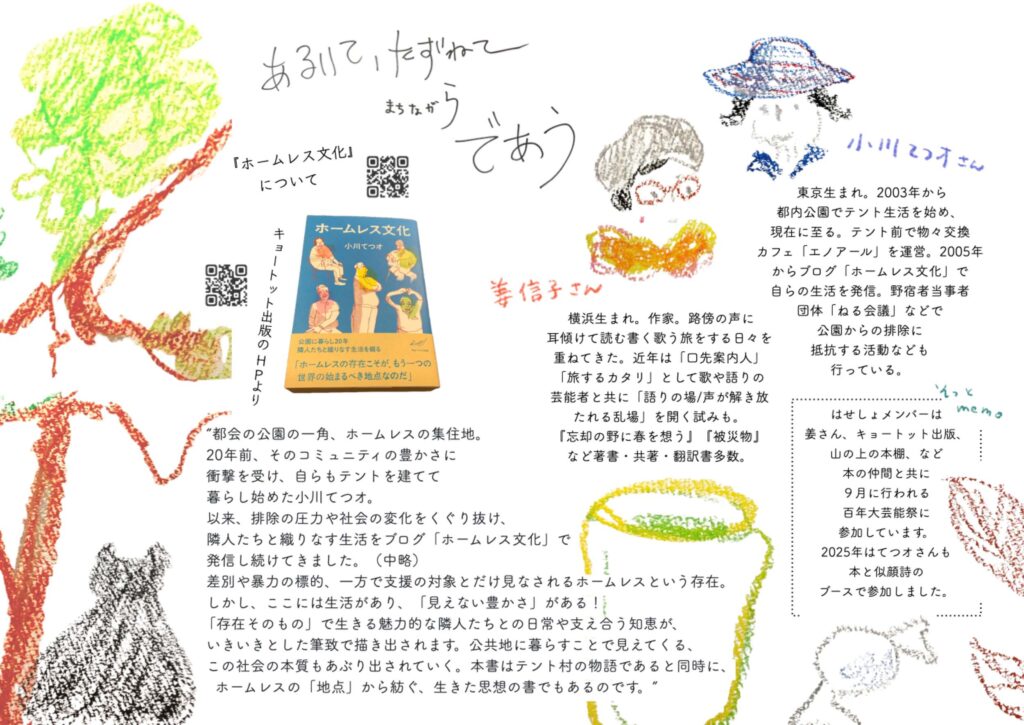 あるいて、たずねて
まちながら
であう
『ホームレス文化』
について
キョートット出版のHPより
ホームレス文化
小川てつオ
公園に暮らし20年
隣人たちと織りなす生活を綴る
「ホームレスの存在こそが、もう一つの
世界の始まるべき地点なのだ」
小川てつオさん
東京生まれ。2003年から
都内公園でテント生活を始め、
現在に至る。テント前で物々交換
カフェ「エノアール」を運営。2005年
からブログ「ホームレス文化」で
自らの生活を発信。野宿者当事者
団体「ねる会議」などで
公園からの排除に
抵抗する活動なども
行っている。
姜信子さん
横浜生まれ。作家。路傍の声に
耳傾けて読む書く歌う旅をする日々を
重ねてきた。近年は「口先案内人」
「旅するカタリ」として歌や語りの
芸能者と共に「語りの場/声が解き放
たれる乱場」を開く試みも。
『忘却の野に春を想う』『被災物』
など著書・共著・翻訳書多数。
そっと
memo
はせしょメンバーは
姜さん、キョートット出版、
山の上の本棚、など
本の仲間と共に
９月に行われる
百年大芸能祭に
参加しています。
2025年はてつオさんも
本と似顔詩の
ブースで参加しました。
“都会の公園の一角、ホームレスの集住地。
20年前、そのコミュニティの豊かさに
衝撃を受け、自らもテントを建てて
暮らし始めた小川てつオ。
以来、排除の圧力や社会の変化をくぐり抜け、
隣人たちと織りなす生活をブログ「ホームレス文化」で
発信し続けてきました。（中略）
差別や暴力の標的、一方で支援の対象とだけ見なされるホームレスという存在。
しかし、ここには生活があり、「見えない豊かさ」がある！
「存在そのもの」で生きる魅力的な隣人たちとの日常や支え合う知恵が、
いきいきとした筆致で描き出されます。公共地に暮らすことで見えてくる、
この社会の本質もあぶり出されていく。本書はテント村の物語であると同時に、
ホームレスの「地点」から紡ぐ、生きた思想の書でもあるのです。”